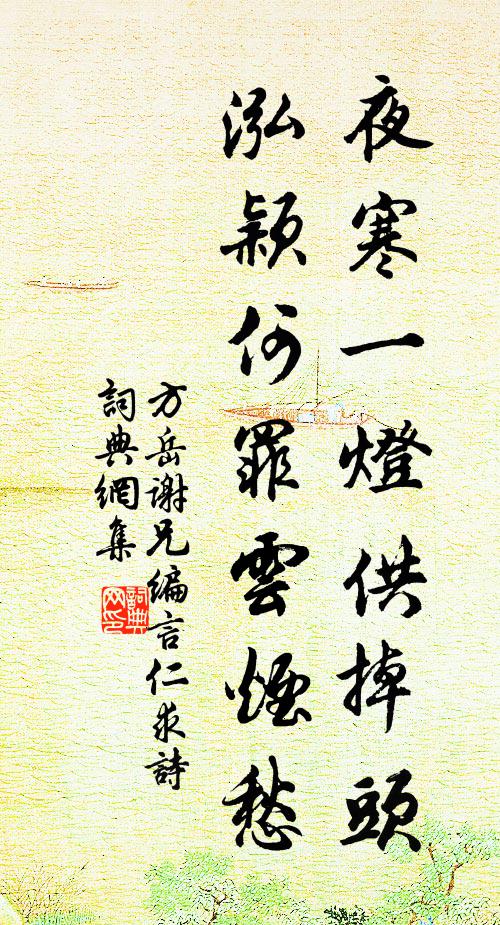 夜寒一燈供掉頭
泓颖何罪雲煙愁
方岳谢兄编言仁求詩
詞典網集
詞典網印